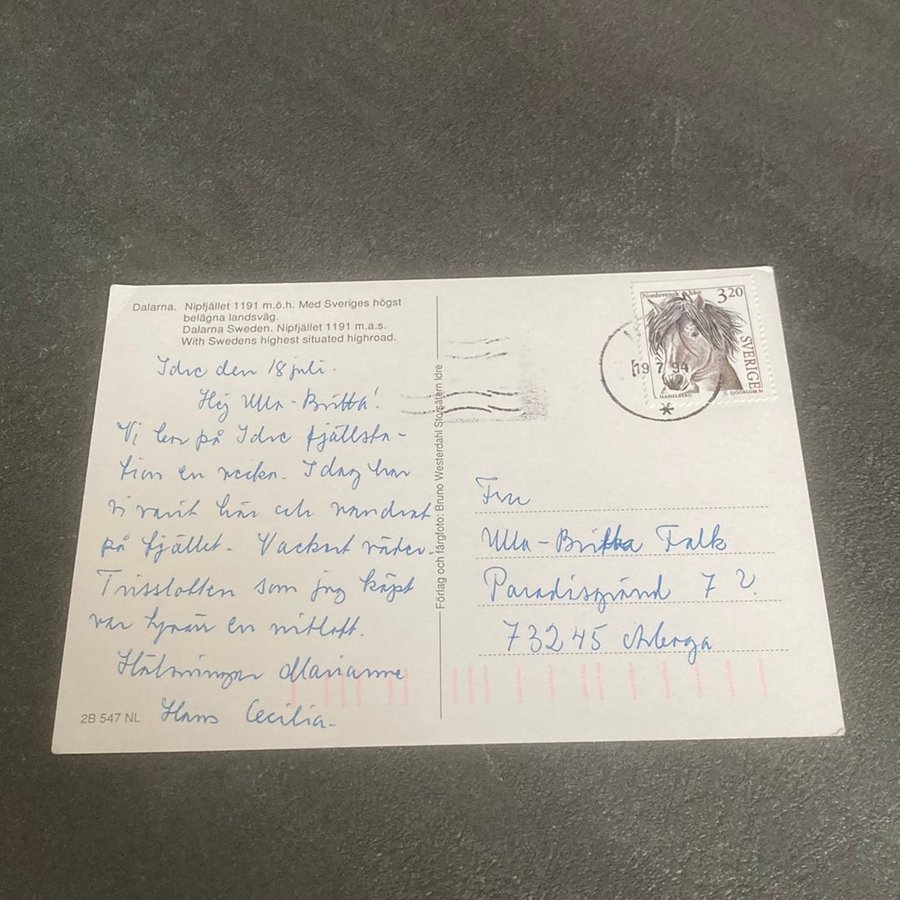 Dalarna. Nipfjället 1191 m.ö.h. Med Sveriges högst
belägna landsväg.
Dalarna Sweden. Nipfjället 1191 m.a.s.
With Swedens highest situated highroad.
Idre den 18 juli.
Hej Ulla-Britta!
Vi bor på Idre fjällsta-
tion en vecka. Idag har
vi varit här och vandrat
på fjället. Vackert väder.
Trisslotten som jag köpt
var tyvärr en nitlott.
Hälsningar Marianne
Hans Cecilia.
2B 547 NL
Förlag och färgfoto: Bruno Westerdahl Storsätern Idre
Nordsvensk häst
3.20
SVERIGE
19 7 94
Fru
Ulla-Britta Falk
Paradisgränd 7
73245 Arboga